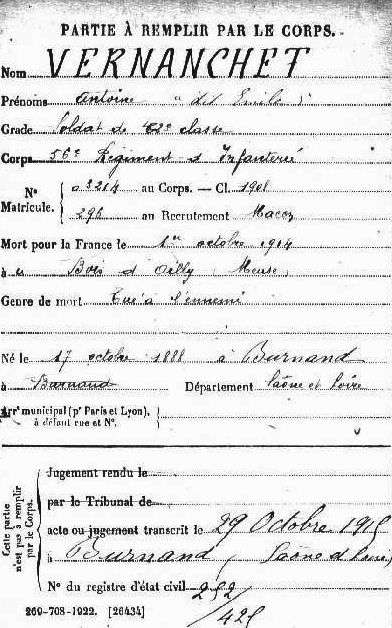 PARTIE À REMPLIR PAR LE CORPS.
Nom VERNANCHET
Prénoms Antoine "dit Emile"
Grade Soldat de 2e classe
Corps 56e Régiment d'Infanterie
N° Matricule. 03214 au Corps. — Cl. 1908
296 au Recrutement Macon
Mort pour la France le 1er octobre 1914
à Bois d'Ailly Meuse
Genre de mort Tué à l'ennemi
Né le 17 octobre 1888 à Burnand
à Burnand Département Saône et Loire
Arrt municipal (pr Paris et Lyon),
à défaut rue et N°.
Cette partie n'est pas à remplir par le Corps.
Jugement rendu le
par le Tribunal de
acte ou jugement transcrit le 29 Octobre 1915
à Burnand (Saône et Loire)
N° du registre d'état civil
/425
269-708-1922. [26434]